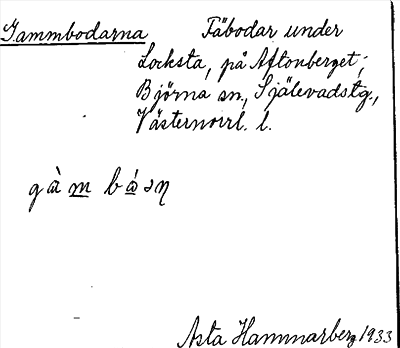 Gammbodarna Fäbodar under
Locksta, på Aftonberget;
Björna sn., Själevadstg.,
Västernorrl. l.
gàm báən
Asta Hammarberg 1933